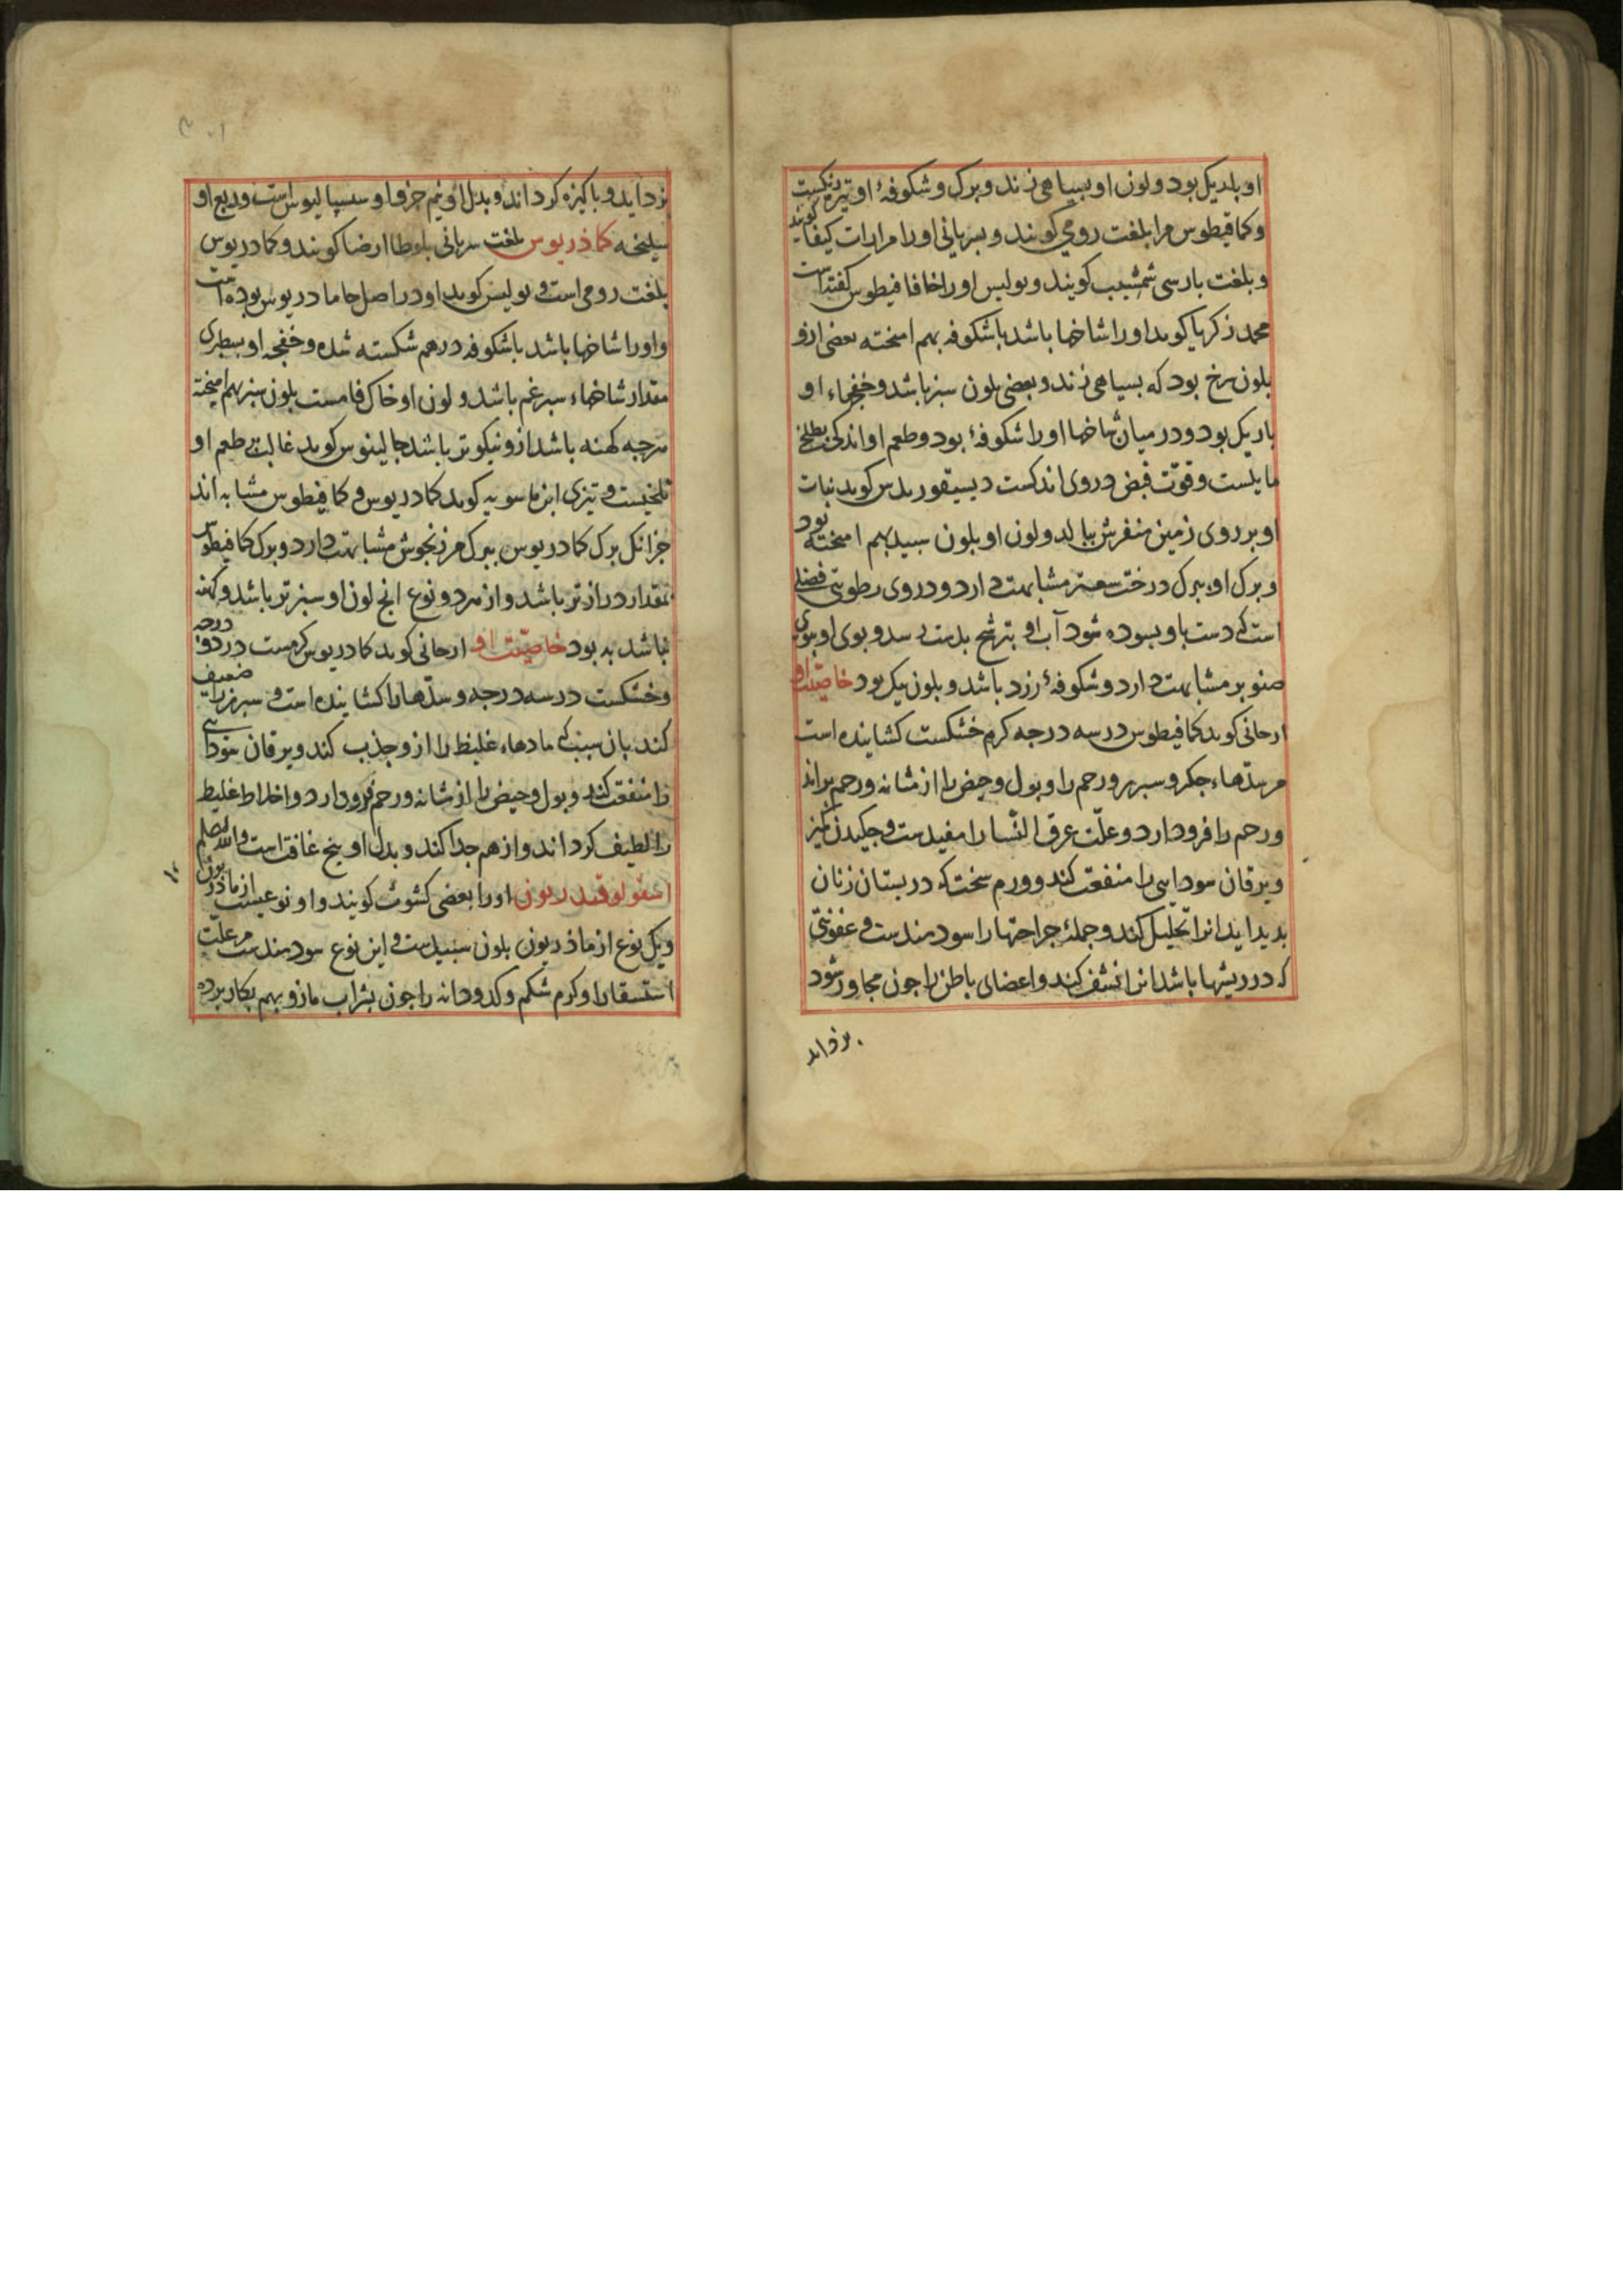 او باریک بود و لون او بسیاهی زند و برک و شکوفهٔ او تیره رنکست
و کمافیطوس مرا بلغت رومی کویند و بسریانی او را مرارات کیفا کویند
و بلغت بارسی شمشیب کویند و بولیس او را خافافیطوس کفته است
محمد زکریا کوید او را شاخها باشد باشکوفه بهم امیخته بعضی ازو
بلون سرخ بود که بسیاهی زند و بعضی بلون سبز باشد و خفجهاء او
باریک بود و در میان شاخها او را شکوفهٔ بود و طعم او اندکی بطلخی
مایلست و قوّت قبض در وی اندکست دیسیقوریدس کوید نبات
او بر روی زمین منفرش ببالد و لون او بلون سبید بهم امیخته بود
و برک او ببرک درخت سعتر مشابهت دارد و در وی رطوبتی فضلی
است کی دست باو بسوده شود آب او بترشح بدست رسد و بوی او ببوی
صنوبر مشابهت دارد و شکوفهٔ زرد باشد و بلون نیک بود خاصیّت او
ارجانی کوید کمافیطوس در سه درجه کرم خشکست کشاینده است
مر سدّهاء جکر و سبرز و رحم را و بول و حیض را از مثانه و رحم براند
و رحم را فرود ارد و علّت عرق النّسا را مفیدست و جکیدن کمیز
و یرقان سودایی را منفعت کند و ورم سخت که در بستان زنان
بدید اید انرا تحلیل کند و جملهٔ جراحتها را سودمندست و عفونتی
که در ریشها باشد انرا نشف کند و اعضای باطن را جون مجاور شود
بزداید
بزداید و باکیزه کرداند و بدل او نیم جزو او سسیالیوس است و ربع او
سلیخه کماذریوس بلغت سریانی بلوطا ارضا کویند و کمادریوس
بلغت رومی است و بولیس کوید او در اصل خامادریوس بوده است
و او را شاخها باشد باشکوفه در هم شکسته شده و خفجه او بسطبری
مقدار شاخهاء سبرغم باشد و لون او خاک فامست بلون سبز بهم امیخته
هرجه کهنه باشد ازو نیکوتر باشد جالینوس کوید غالب بر طعم او
تلخیست و تیزی ابن ماسویه کوید کمادریوس و کمافیطوس مشابه اند
جز انک برک کمادریوس ببرک مرزنجوش مشابهت دارد و برک کمافیطوس
بمقدار درازتر باشد و از هر دو نوع انج لون او سبزتر باشد و کهنه
نباشد به بود خاصیّت او ارجانی کوید کمادریوس کرمست در دو درجه
و خشکست در سه درجه و سدّها را کشاینده است و سبرز را ضعیف
کند بان سبب کی مادهاء غلیظ را ازو جذب کند و یرقان سودایی
را منفعت کند و بول و حیض را از مثانه و رحم فرود ارد و اخلاط غلیظ
را لطیف کرداند و از هم جدا کند و بدل او بیخ غافت است والله اعلم
اسقولوقندریون او را بعضی کشوث کویند و او نوعیست از ماذریون
و یک نوع از ماذریون بلون سبیدست و این نوع سودمندست مر علّت
استسقا را و کرم شکم و کدودانه را جون بشراب مازو بهم بکار برده